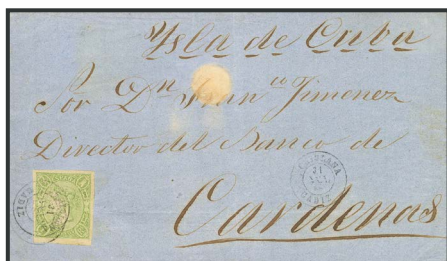 Ysla de Cuba
Sor Dn Franco Jimenez
Director del Banco de
Cardenas
CADIZ